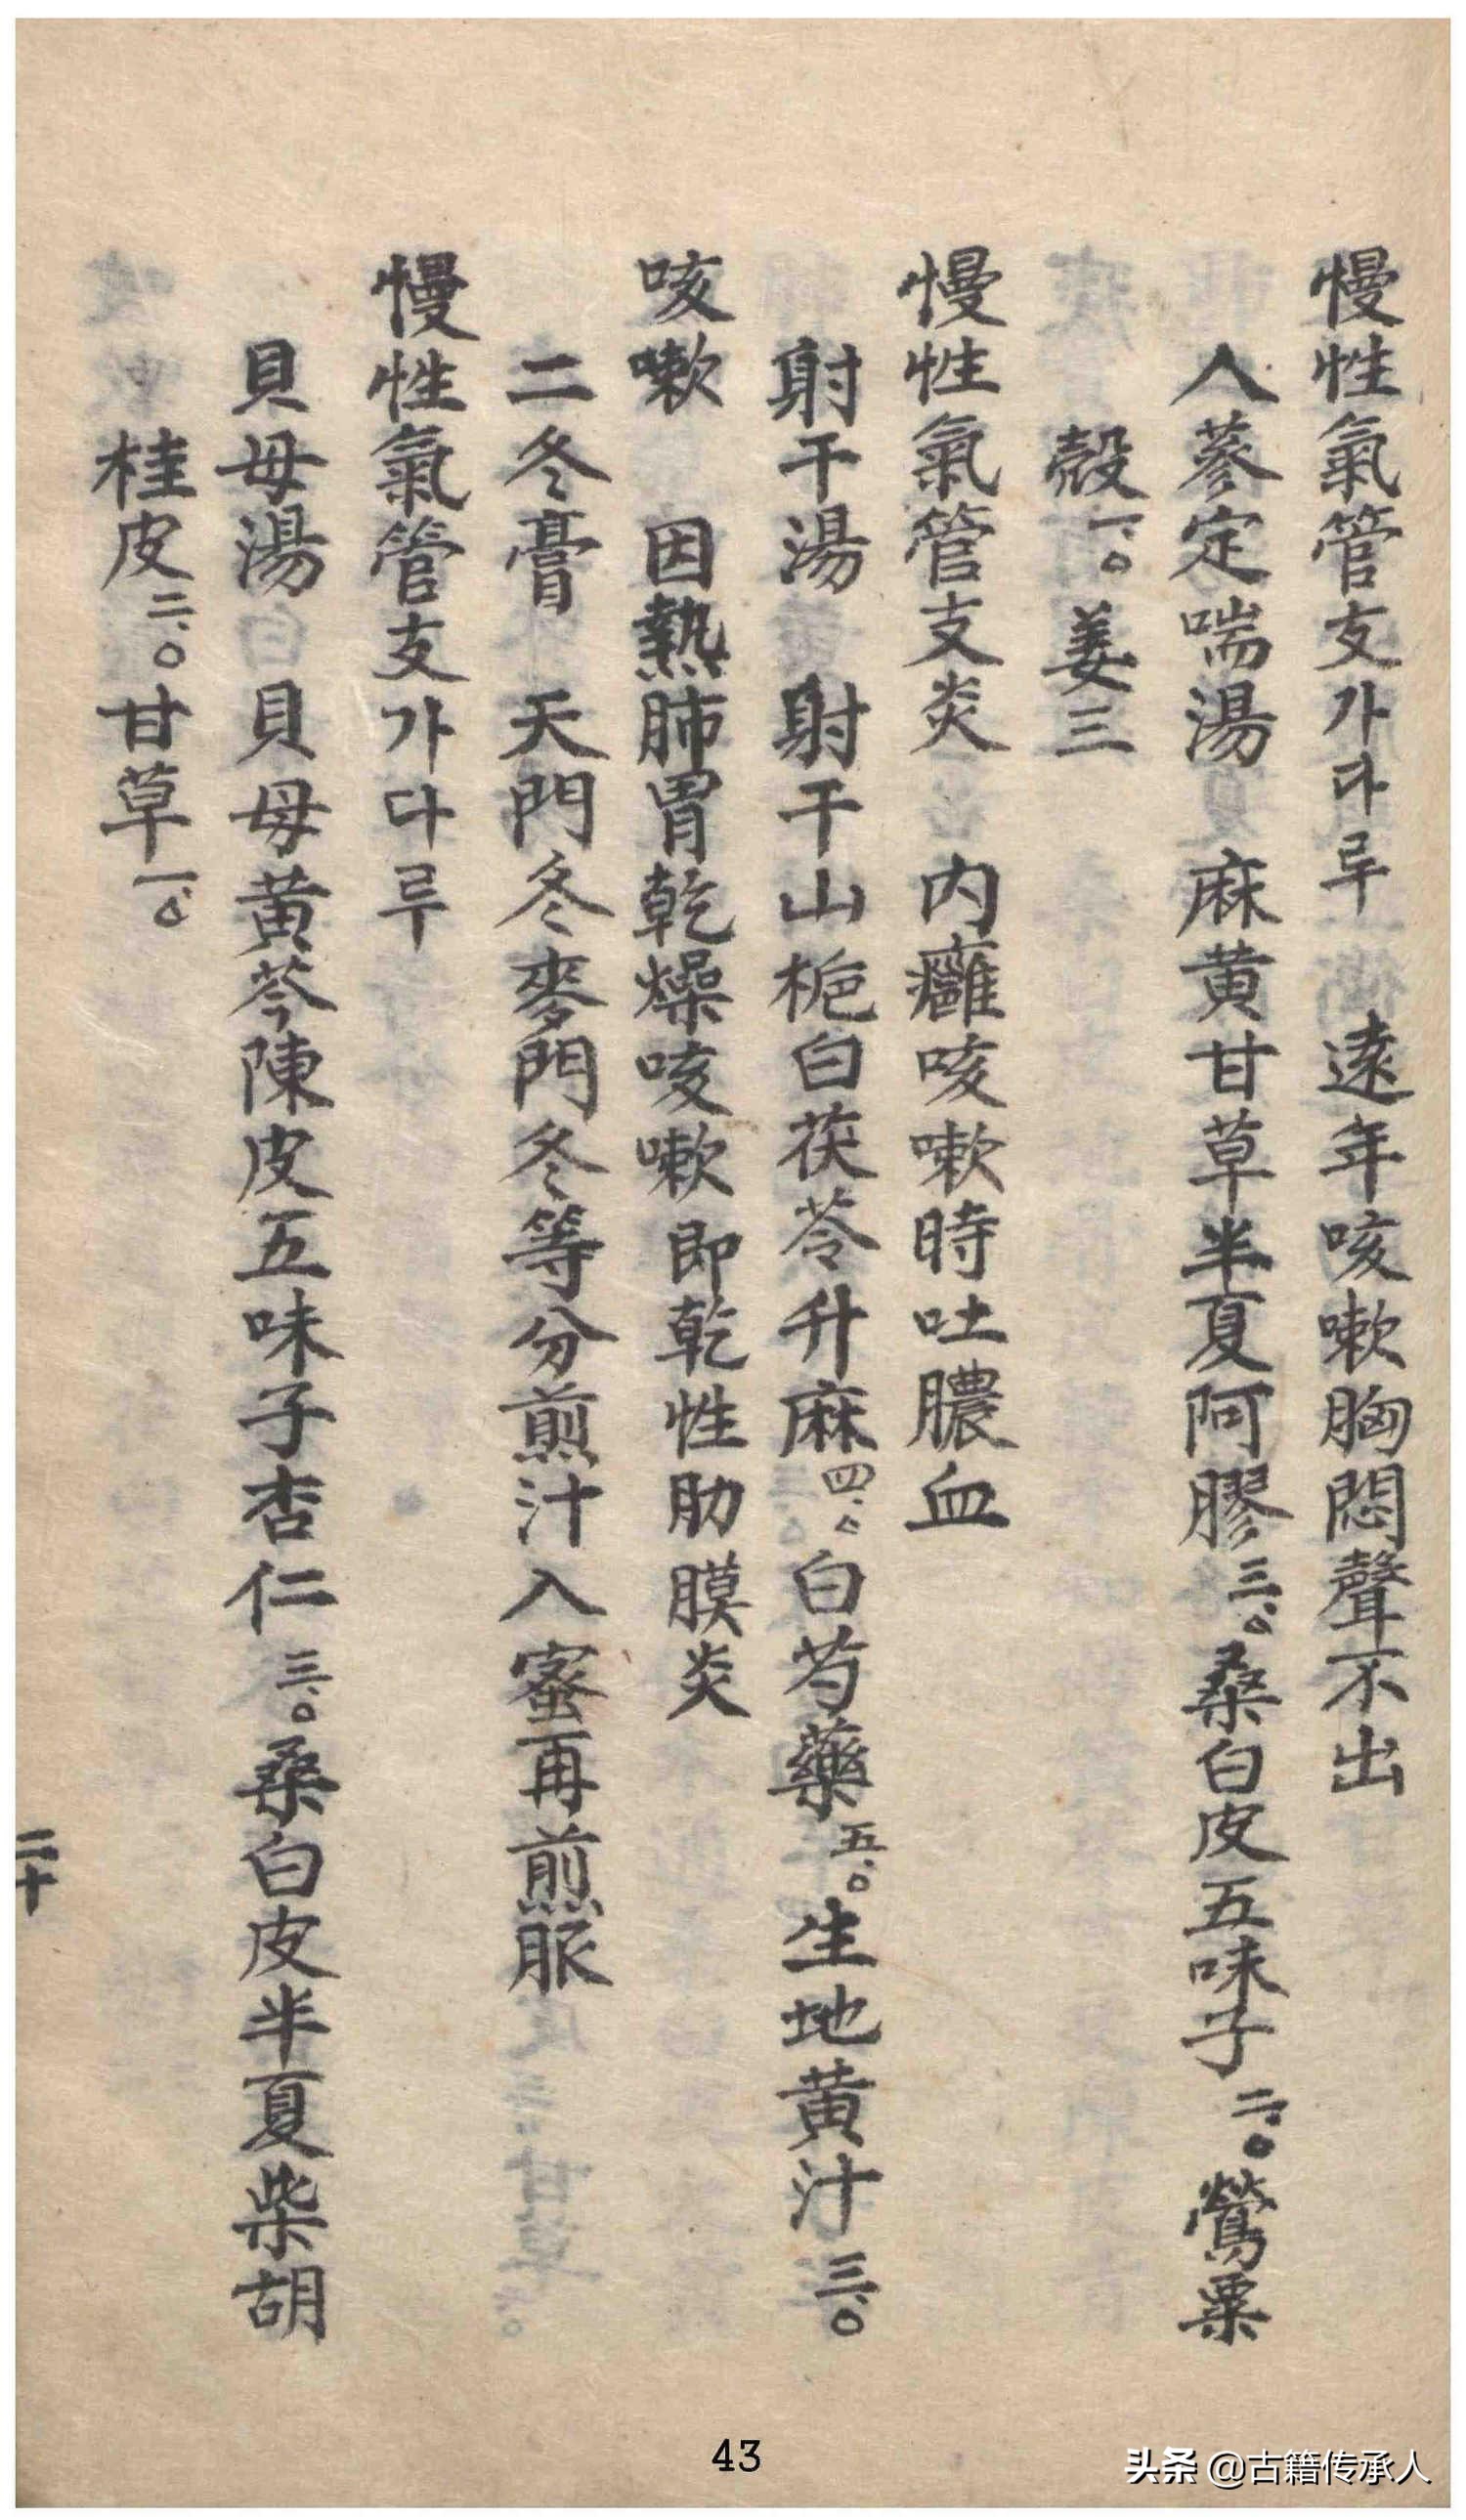 慢性氣管支가다루 遠年咳嗽胸悶聲不出
人蔘定喘湯 麻黃甘草半夏阿膠三.○桑白皮五味子二.○鶯粟
殼一.○姜三
慢性氣管支炎 內癰咳嗽時吐膿血
射干湯 射干山梔白茯苓升麻四.○白芍藥五.○生地黃汁三.○
咳嗽 因熱肺胃乾燥咳嗽即乾性肋膜炎
二冬膏 天門冬麥門冬等分煎汁入蜜再煎服
慢性氣管支가다루
貝母湯 貝母黃芩陳皮五味子杏仁三.○桑白皮半夏柴胡
桂皮二.○甘草一.○
二十
43
头条 @古籍传承人